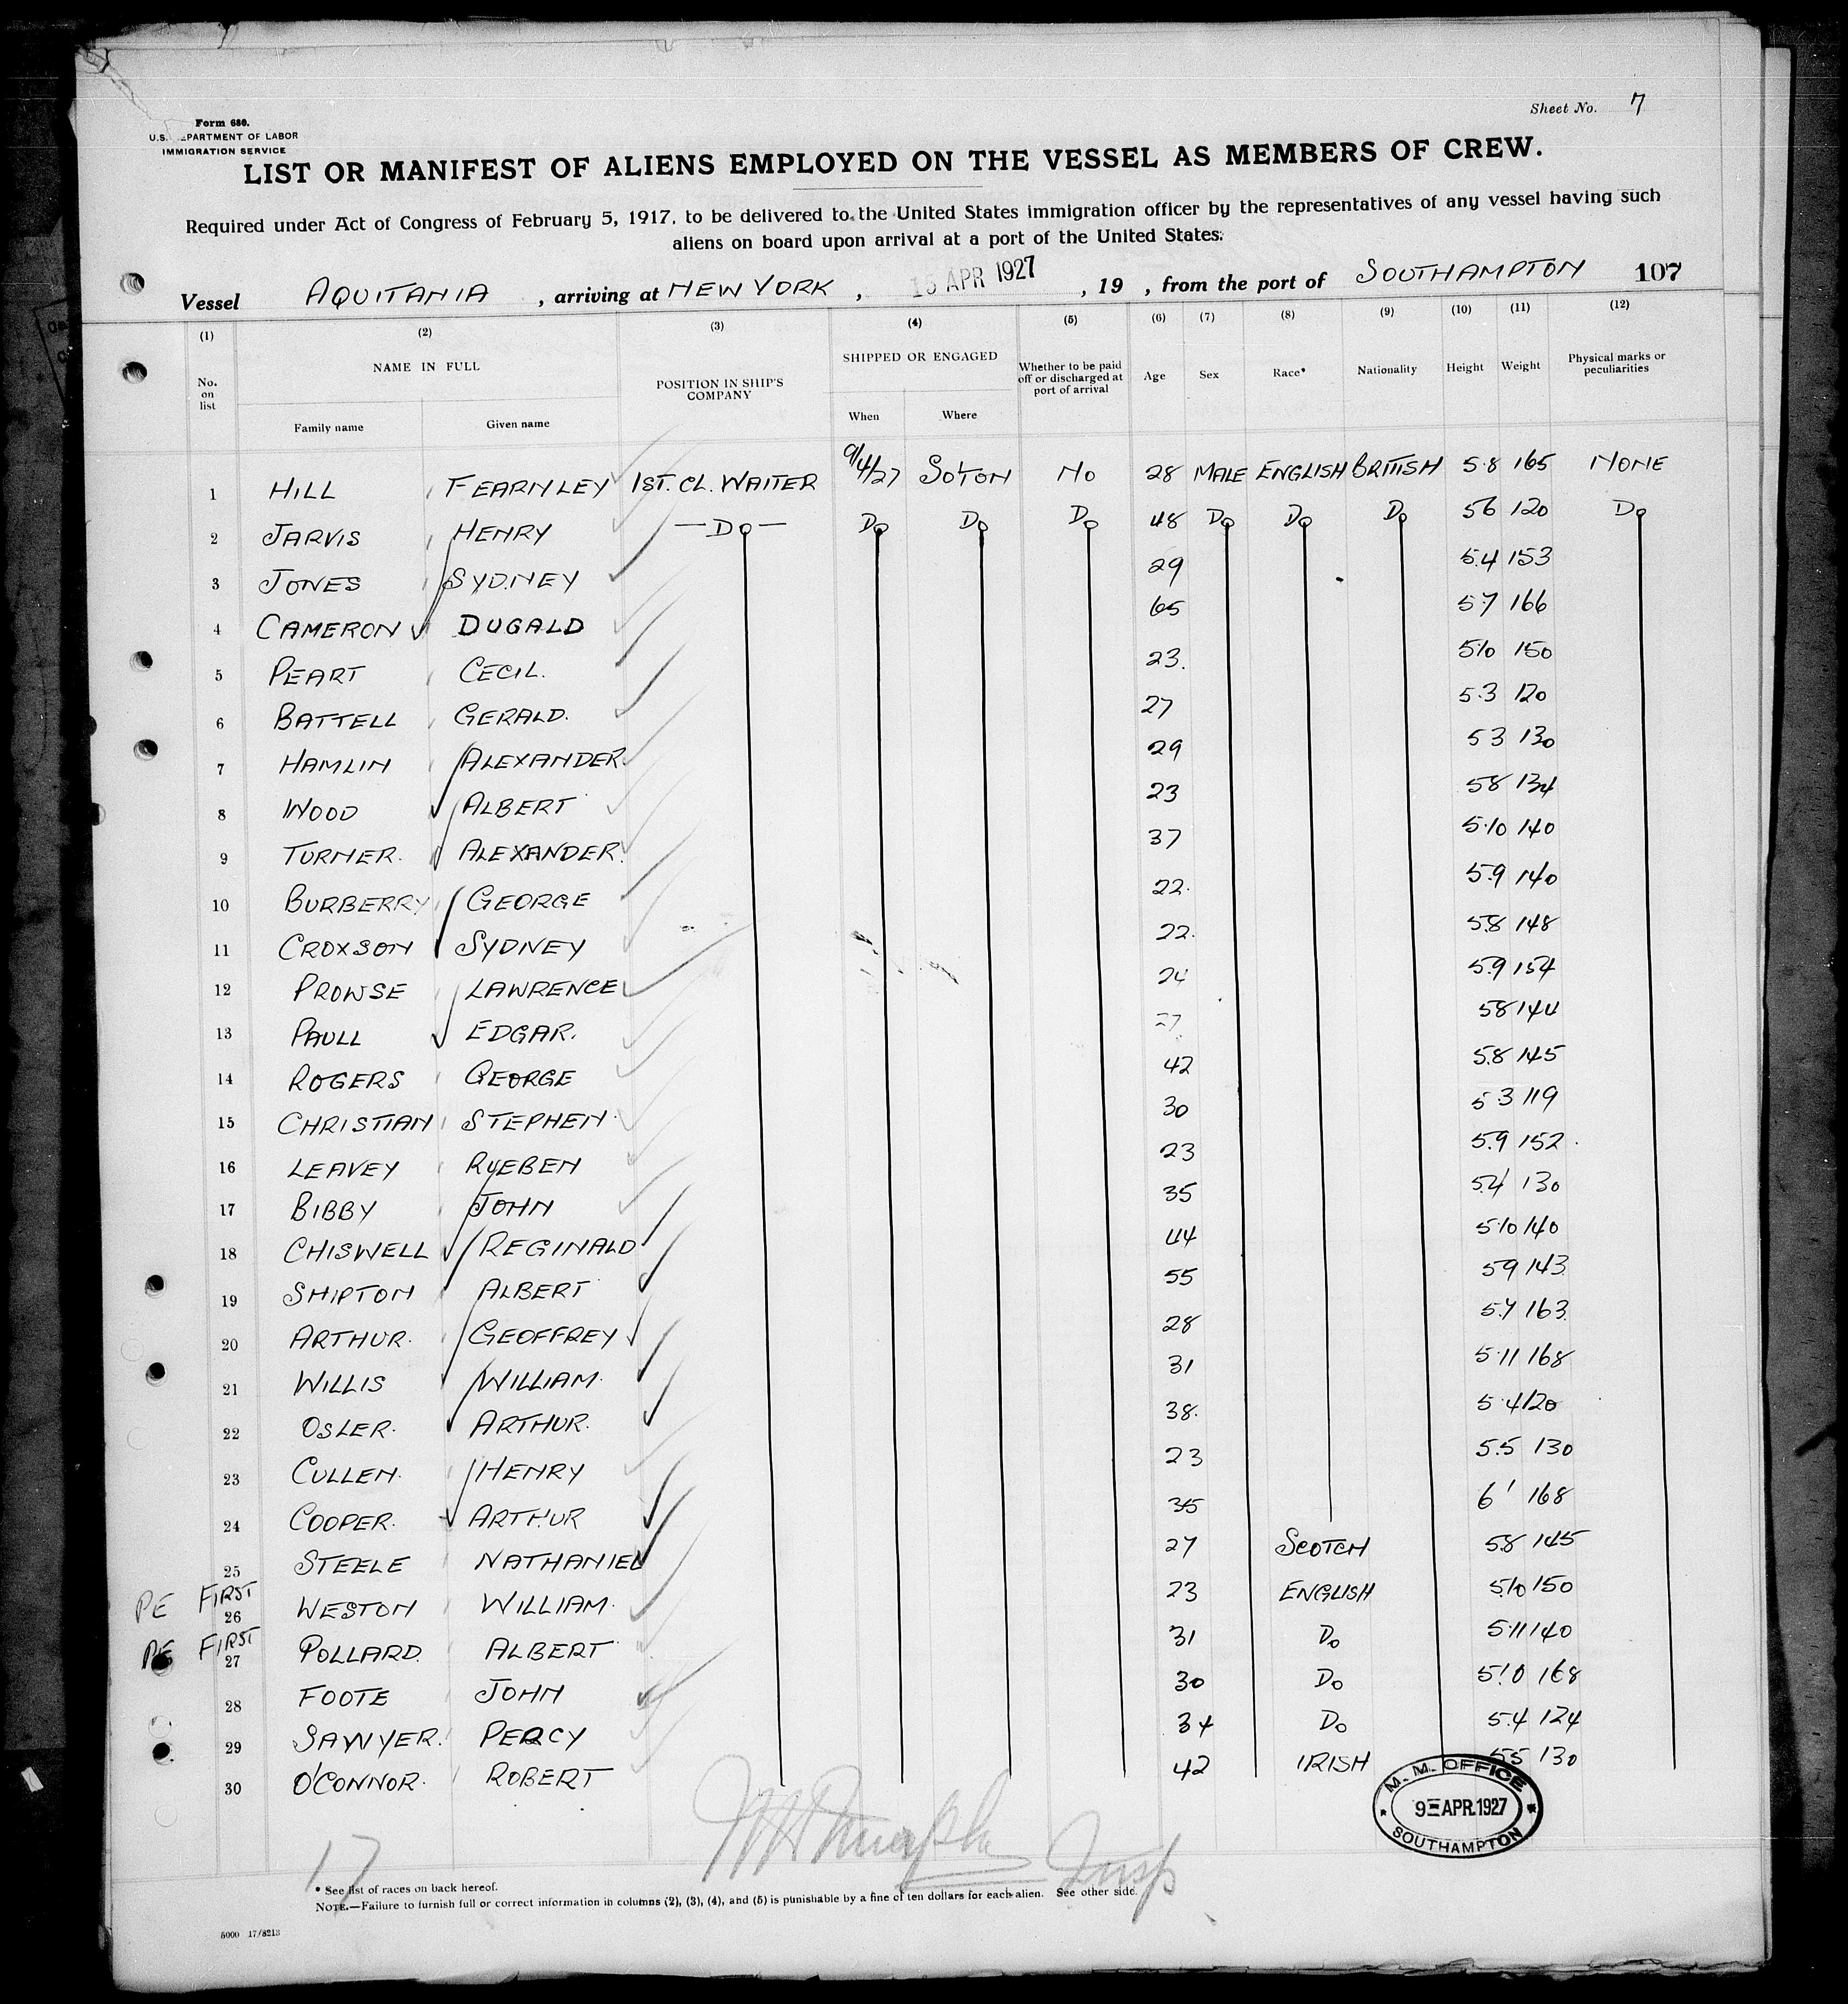 Sheet No. 7
Form 680.
U.S. DEPARTMENT OF LABOR
IMMIGRATION SERVICE
LIST OR MANIFEST OF ALIENS EMPLOYED ON THE VESSEL AS MEMBERS OF CREW.
Required under Act of Congress of February 5, 1917, to be delivered to the United States immigration officer by the representatives of any vessel having such
aliens on board upon arrival at a port of the United States.
Vessel AQUITANIA , arriving at NEW YORK , 15 APR 1927 , 19 , from the port of SOUTHAMPTON 107
(1) (2) (3) (4) (5) (6) (7) (8) (9) (10) (11) (12)
No. on list NAME IN FULL POSITION IN SHIP'S COMPANY SHIPPED OR ENGAGED Whether to be paid off or discharged at port of arrival Age Sex Race* Nationality Height Weight Physical marks or peculiarities
Family name Given name When Where
1 HILL FEARNLEY 1ST. CL. WAITER 9/4/27 SOTON NO 28 MALE ENGLISH BRITISH 5.8 165 NONE
2 JARVIS HENRY —DO— DO DO DO 48 DO DO DO 56 120 DO
3 JONES SYDNEY 29 5.4 153
4 CAMERON DUGALD 65 57 166
5 PEART CECIL. 23. 5.10 150
6 BATTELL GERALD. 27 5.3 120
7 HAMLIN ALEXANDER. 29 53 130
8 WOOD ALBERT 23 58 134
9 TURNER. ALEXANDER. 37 5.10 140
10 BURBERRY GEORGE 22. 5.9 140
11 CROXSON SYDNEY 22. 5.8 148
12 PROWSE LAWRENCE 24 5.9 154
13 PAULL EDGAR. 27 58 144
14 ROGERS GEORGE 42 5.8 145
15 CHRISTIAN STEPHEN. 30 5 3 119
16 LEAVEY RUEBEN 23 5.9 152
17 BIBBY JOHN 35 5.4 130
18 CHISWELL REGINALD 44 5.10 140
19 SHIPTON ALBERT 55 59 143
20 ARTHUR. GEOFFREY 28 5.7 163
21 WILLIS WILLIAM. 31 5.11 168
22 OSLER. ARTHUR. 38. 5.4 120
23 CULLEN. HENRY 23 5.5 130
24 COOPER. ARTHUR 35 6' 168
25 STEELE NATHANIEL 27 SCOTCH 5.8 145
PE FIRST 26 WESTON WILLIAM. 23 ENGLISH 5.10 150
PE FIRST 27 POLLARD. ALBERT 31 DO 5.11 140
28 FOOTE JOHN 30 DO 5.10 168
29 SAWYER. PERCY 34 DO 5.4 124
30 O'CONNOR. ROBERT 42 IRISH 5.5 130
M. M. OFFICE
9 APR. 1927
SOUTHAMPTON
17 Insp
* See list of races on back hereof.
NOTE.—Failure to furnish full or correct information in columns (2), (3), (4), and (5) is punishable by a fine of ten dollars for each alien. See other side.
5000 17/8213